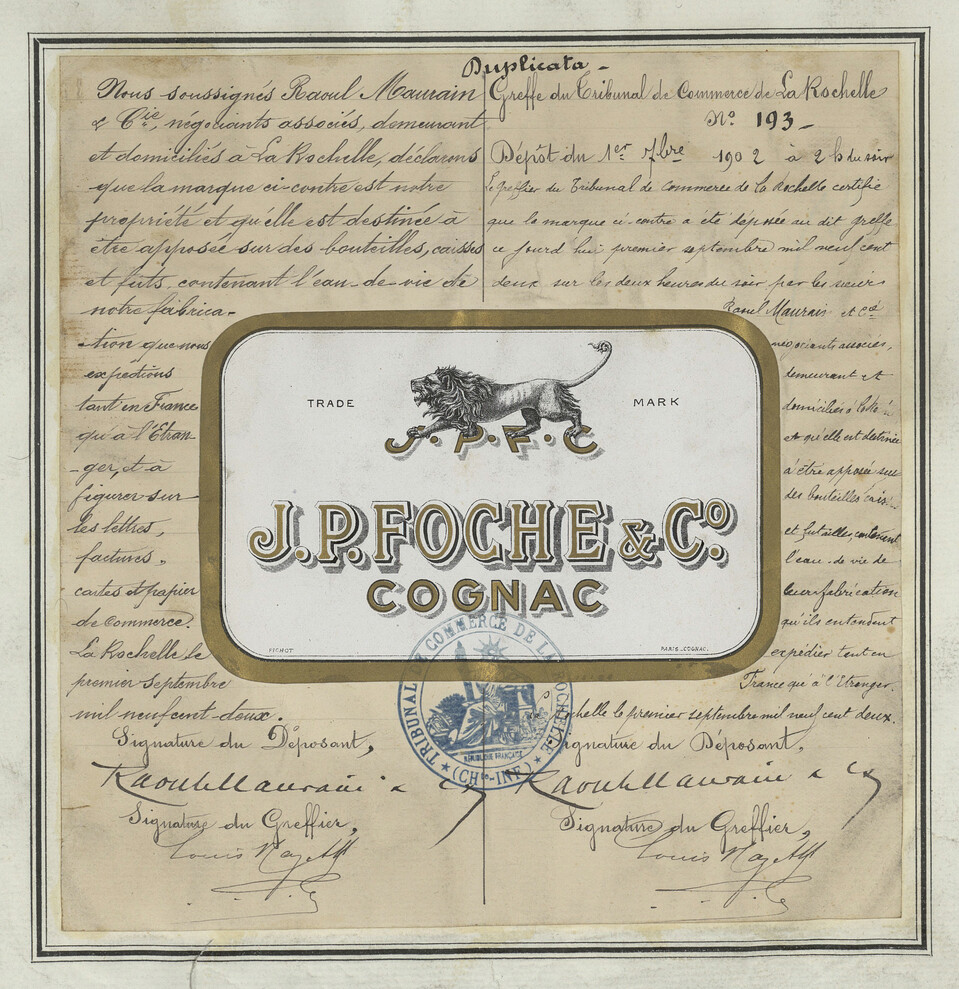 Duplicata -
Nous soussignés Raoul Maurain
& Cie, négociants associés, demeurant
et domiciliés à La Rochelle, déclarons
que la marque ci-contre est notre
propriété et qu'elle est destinée à
être apposée sur des bouteilles, caisses
et fûts contenant l'eau-de-vie de
notre fabrica-
-tion que nous
expédions
tant en France
qu'à l'Etran-
-ger, et à
figurer sur
les lettres,
factures,
cartes et papier
de Commerce.
La Rochelle le
premier Septembre
mil neuf cent deux.
Signature du Déposant,
Raoul Maurain & Cie
Signature du Greffier,
Louis
Greffe du Tribunal de Commerce de La Rochelle
No 193 -
Dépôt du 1er 7bre 1902 à 2 h du soir
Le greffier du Tribunal de Commerce de La Rochelle certifie
que la marque ci-contre a été déposée au dit greffe
ce jourd'hui premier septembre mil neuf cent
deux sur les deux heures du soir par les sieurs
Raoul Maurain et Cie
négociants associés,
demeurant et
domiciliés à
et qu'elle est destinée
à être apposée sur
des bouteilles
et futailles, contenant
l'eau-de-vie de
leur fabrication
qu'ils entendent
expédier tant en
France qu'à l'Etranger.
le premier septembre mil neuf cent deux.
Signature du Déposant,
Raoul Maurain & Cie
Signature du Greffier,
Louis
TRADE MARK
J·P·F·C
J.P.FOCHE & Co.
COGNAC
PICHOT PARIS_COGNAC.
TRIBUNAL DE COMMERCE DE LA ROCHELLE
RÉPUBLIQUE FRANÇAISE
(CHte-INF)